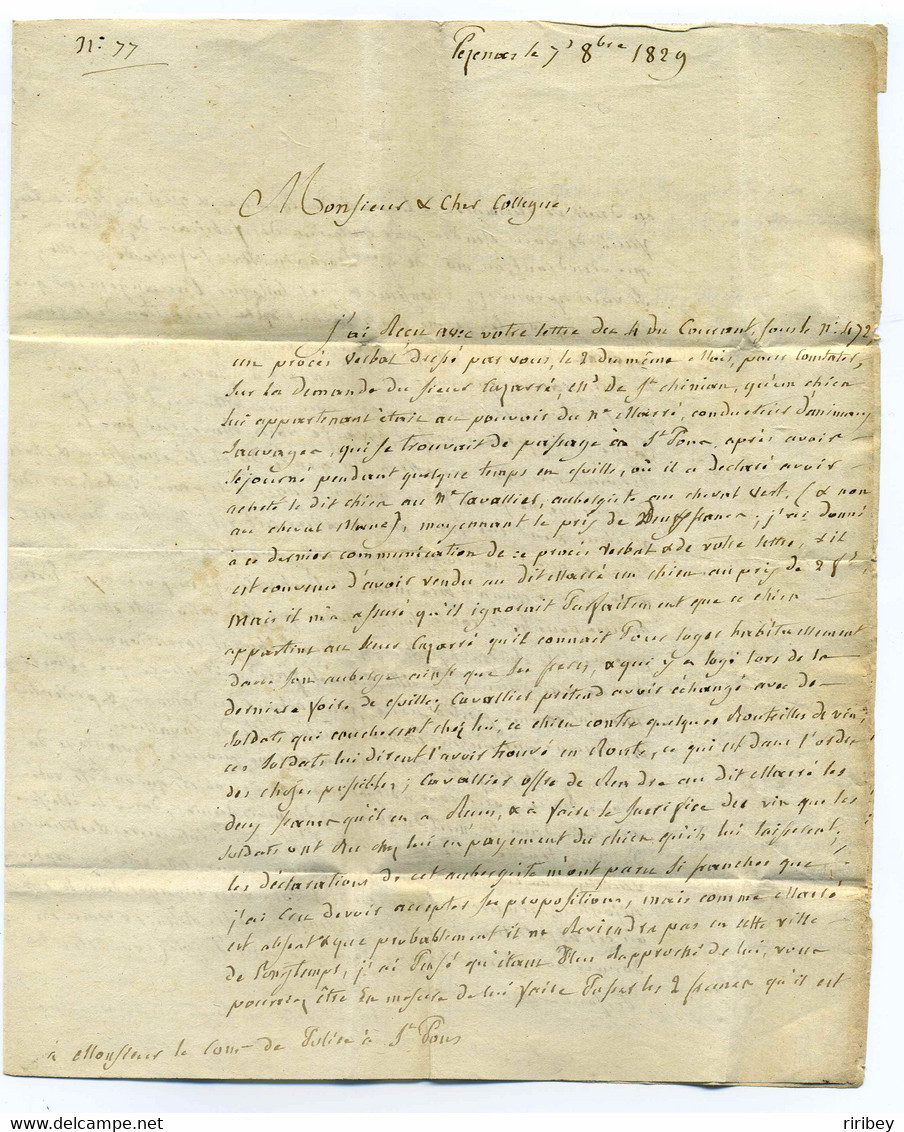 N.° 77
Pezenas le 7 8bre 1829
Monsieur & Cher Collegue,
j'ai Reçu avec votre lettre du 4 du Courant, sous le N.° 472
un procès verbal dressé par vous, le 2 du même Mois, pour Constater,
sur la demande du sieur Cazarré, de St. chinian, qu'un chien
lui appartenant était au pouvoir du Né. Marré, conducteur d'animaux
sauvages, qui se trouvait de passage à St. Pons, après avoir
séjourné pendant quelque temps en ville, où il a declaré avoir
acheté le dit chien au Né. Cavallier, aubergiste au cheval vert, (& non
au cheval blanc), moyennant le prix de Deux francs; j'ai donné
à ce dernier communication de ce procès verbal & de votre lettre, & il
est convenu d'avoir vendu au dit Marré un chien au prix de 2 f.
Mais il m'a assuré qu'il ignorait Parfaitement que ce chien
appartint au sieur Cazarré qu'il connait Pour loger habituellement
dans son auberge ainsi que ses freres, & qui y a logé lors de la
derniere foire de cette ville; Cavallier prétend avoir échangé avec des
soldats qui coucherent chez lui, ce chien contre quelques Bouteilles de vin;
ces soldats lui dirent l'avoir trouvé en Route, ce qui est dans l'ordre
des choses possibles; Cavallier offre de Rendre au dit Marré les
deux francs qu'il en a Reçu, & à faire le sacrifice du vin que les
soldats ont Bu chez lui en payement du chien qu'ils lui laisserent;
les déclarations de cet aubergiste m'ont paru si franches que
j'ai Cru devoir accepter ses propositions, mais comme Marré
est absent & que probablement il ne Reviendra pas en cette ville
de longtemps, j'ai Pensé qu'étant Plus Rapproché de lui, vous
pourriez être En mesure de lui faire Passer les 2 francs qu'il est
à Monsieur le Com.re de Police à St. Pons
riribey